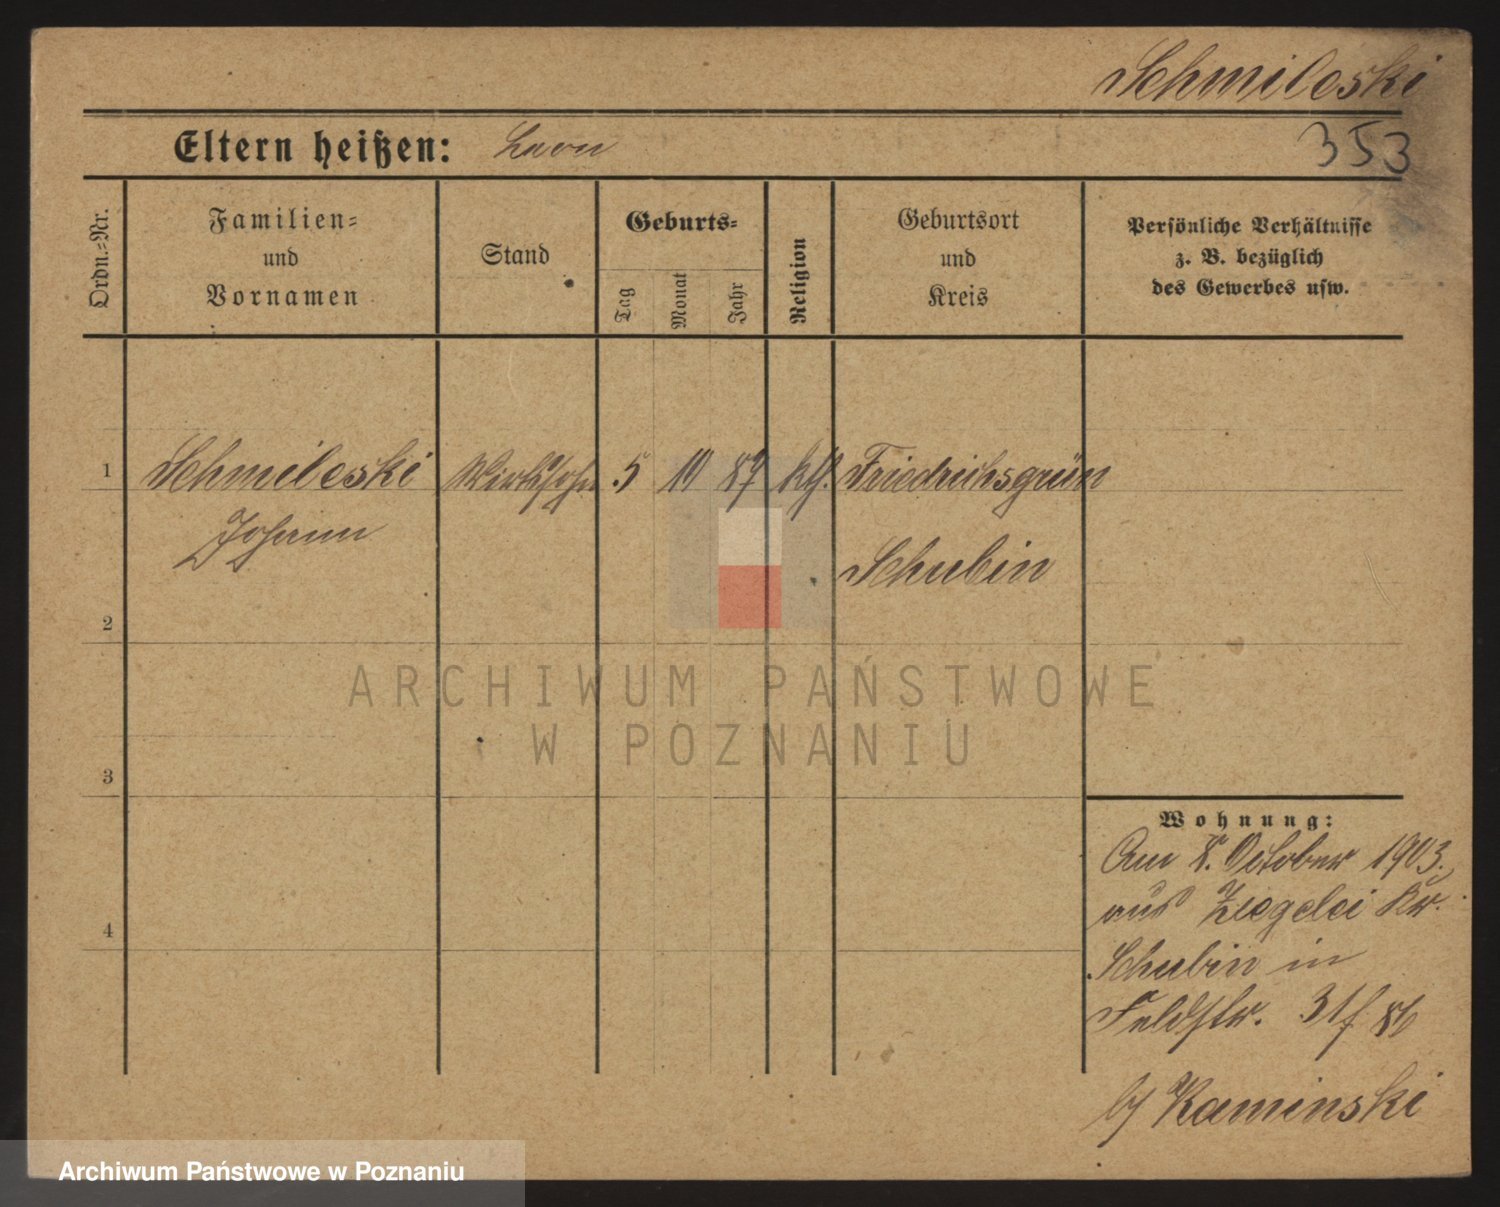 Schmileski
353
Eltern heißen: Leon
Ordn.-Nr.
Familien-
und
Vornamen
Stand
Geburts-
Tag
Monat
Jahr
Religion
Geburtsort
und
Kreis
Persönliche Verhältnisse
z. B. bezüglich
des Gewerbes usw.
1 Schmileski Wirtssohn 5 10 87 kth. Friedrichsgrün
Johann
Schubin
2
3
4
ARCHIWUM PAŃSTWOWE
W POZNANIU
Wohnung:
Am 8. October 1903.
aus Ziegelei Kr.
Schubin in
Feldstr. 31
b/ Kaminski
Archiwum Państwowe w Poznaniu